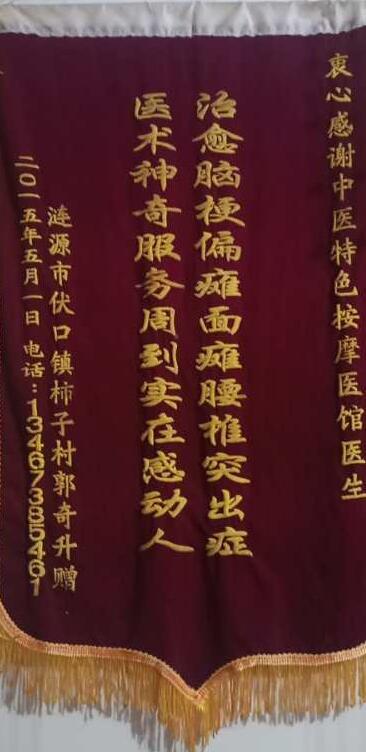 衷心感谢中医特色按摩医馆医生
治愈脑梗偏瘫面瘫腰椎突出症
医术神奇服务周到实在感动人
涟源市伏口镇柿子村郭奇升赠
二〇一五年五月一日 电话：13467385461